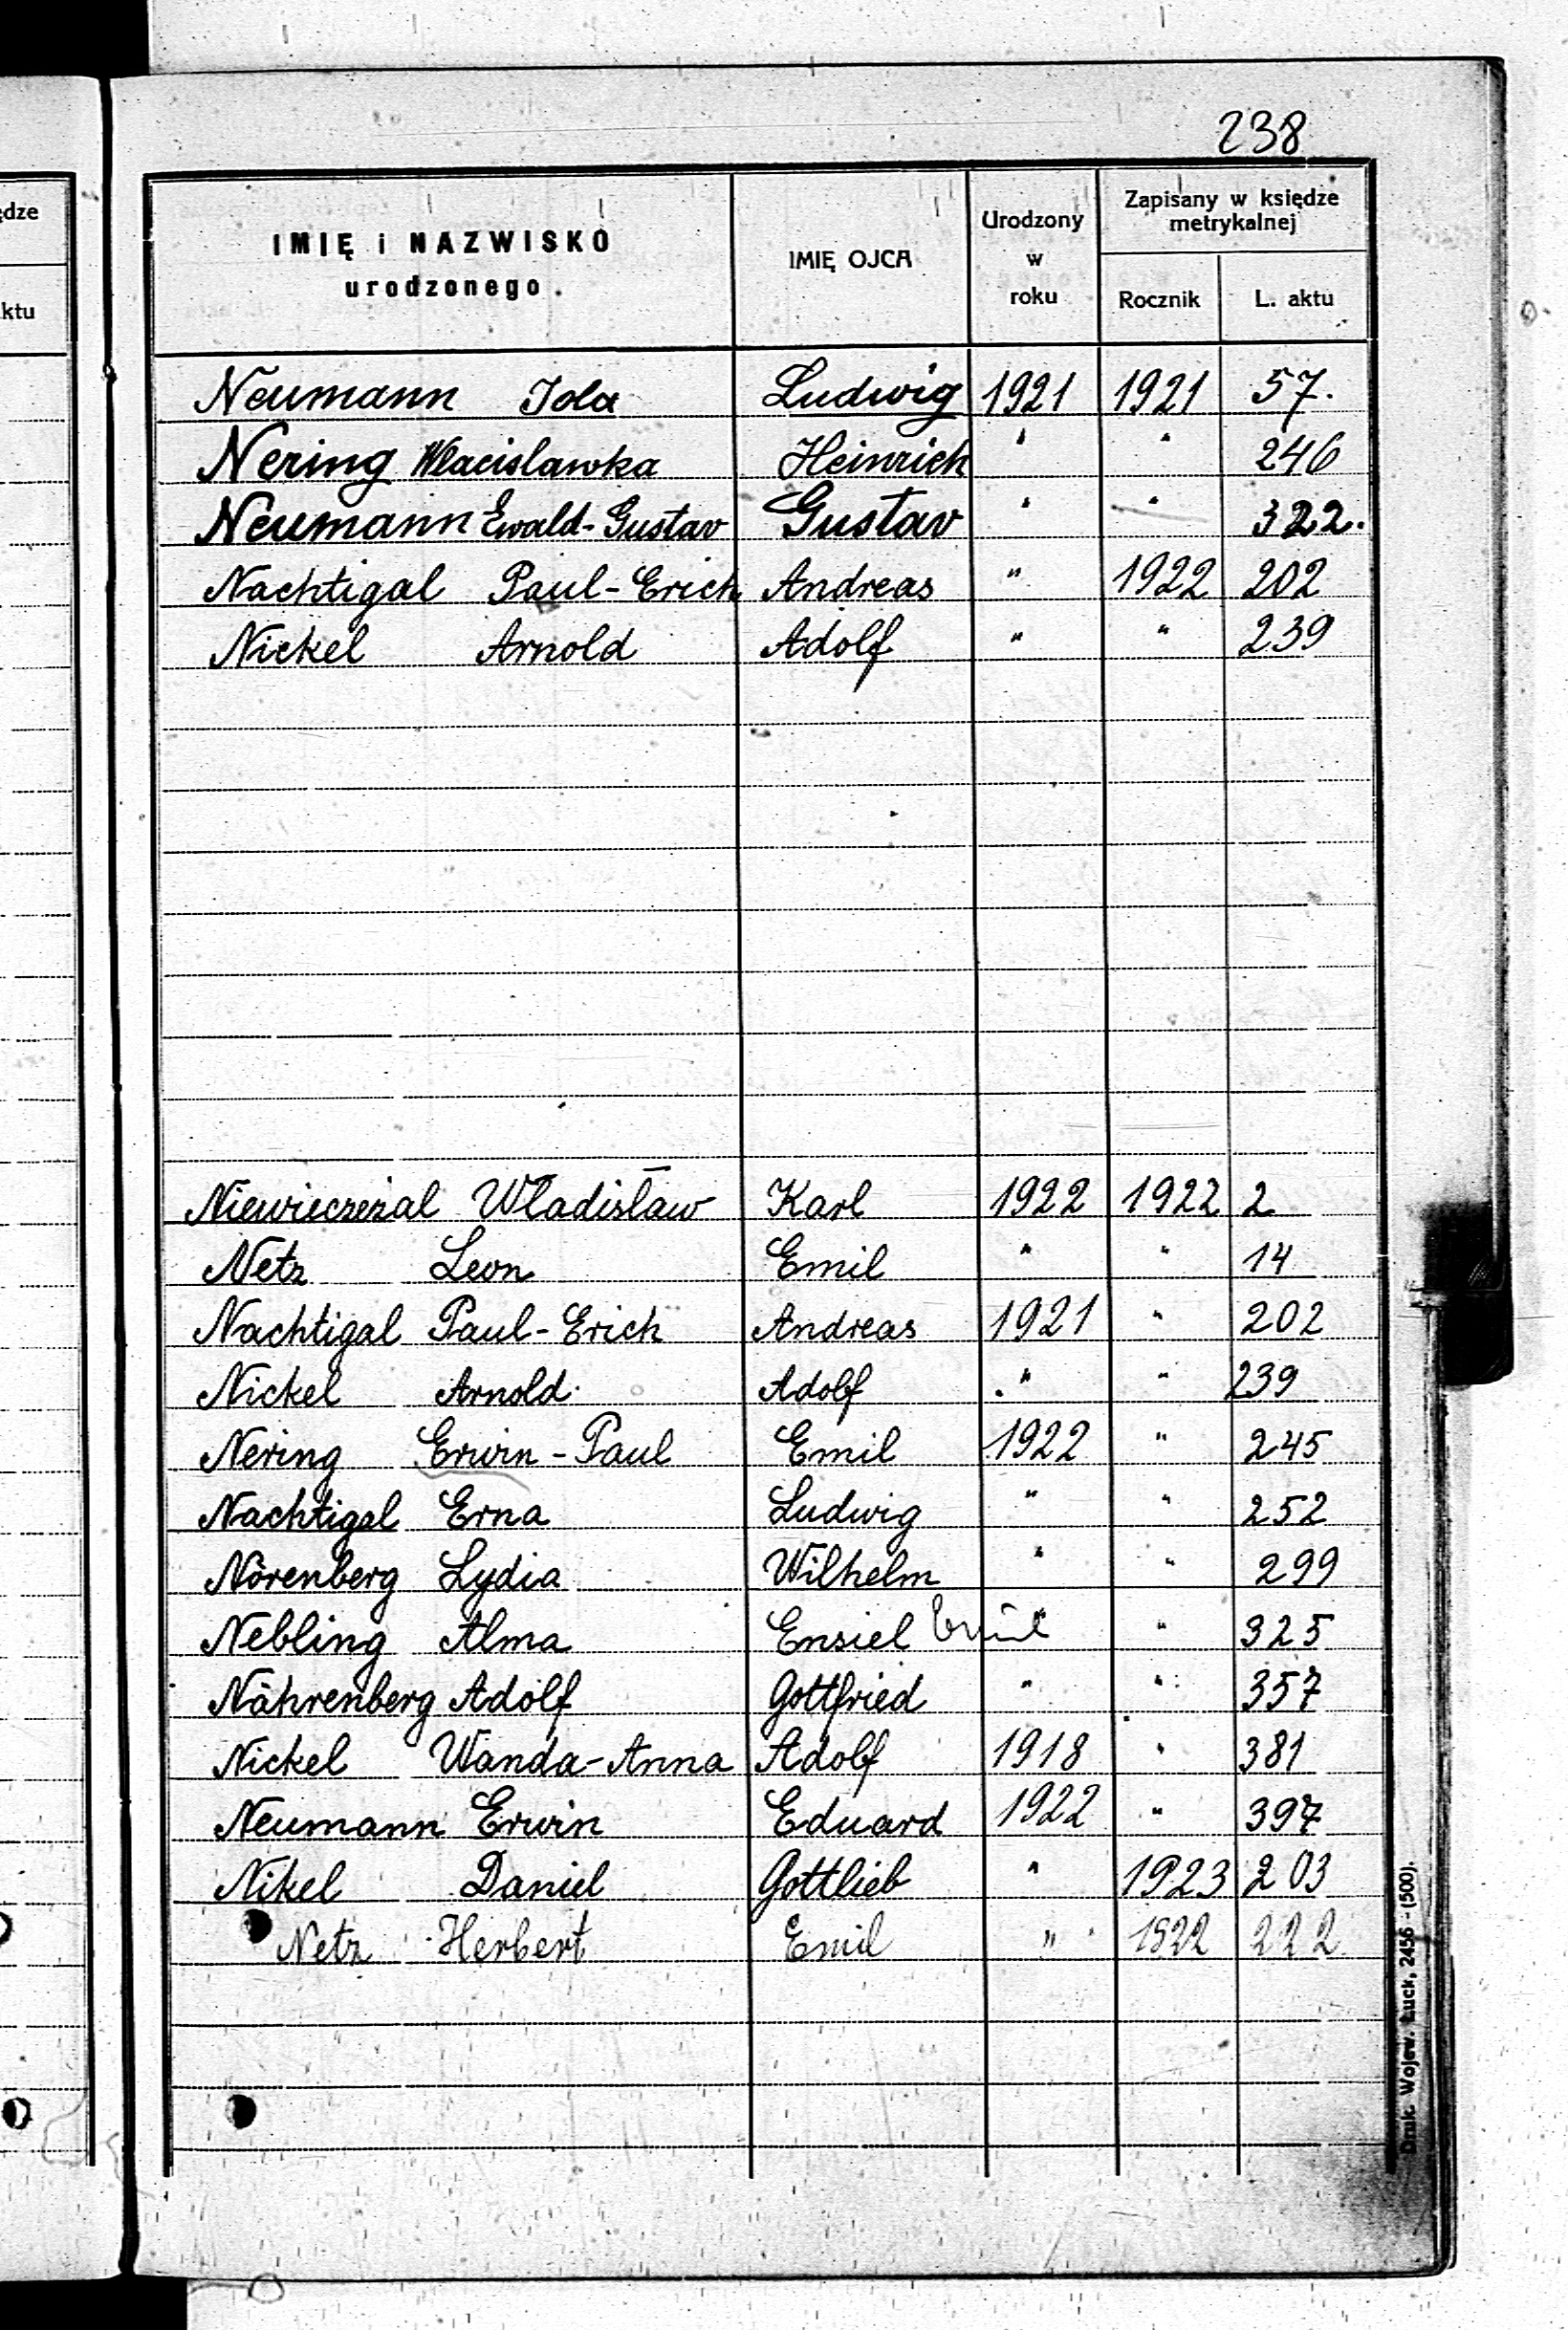 238
ędze
ktu
IMIĘ i NAZWISKO urodzonego.
IMIĘ OJCA
Urodzony w roku
Zapisany w księdze metrykalnej
Rocznik L. aktu
Neumann Ida Ludwig 1921 1921 57.
Nering Wlacislawka Heinrich " " 246
Neumann Ewald-Gustav Gustav " " 322.
Nachtigal Paul-Erich Andreas " 1922 202
Nickel Arnold Adolf " " 239
Niewieczeżal Władisław Karl 1922 1922 2
Netz Leon Emil " " 14
Nachtigal Paul-Erich Andreas 1921 " 202
Nickel Arnold Adolf " " 239
Nering Erwin-Paul Emil 1922 " 245
Nachtigal Erna Ludwig " " 252
Nörenberg Lydia Wilhelm " " 299
Nebling Alma Ensiel Emil " 325
Nährenberg Adolf Gottfried " " 357
Nickel Wanda-Anna Adolf 1918 " 381
Neumann Erwin Eduard 1922 " 397
Nikel Daniel Gottlieb " 1923 203
Netz Herbert Emil " 1922 222
Druk. Wojew. Łuck, 2456 - (500).